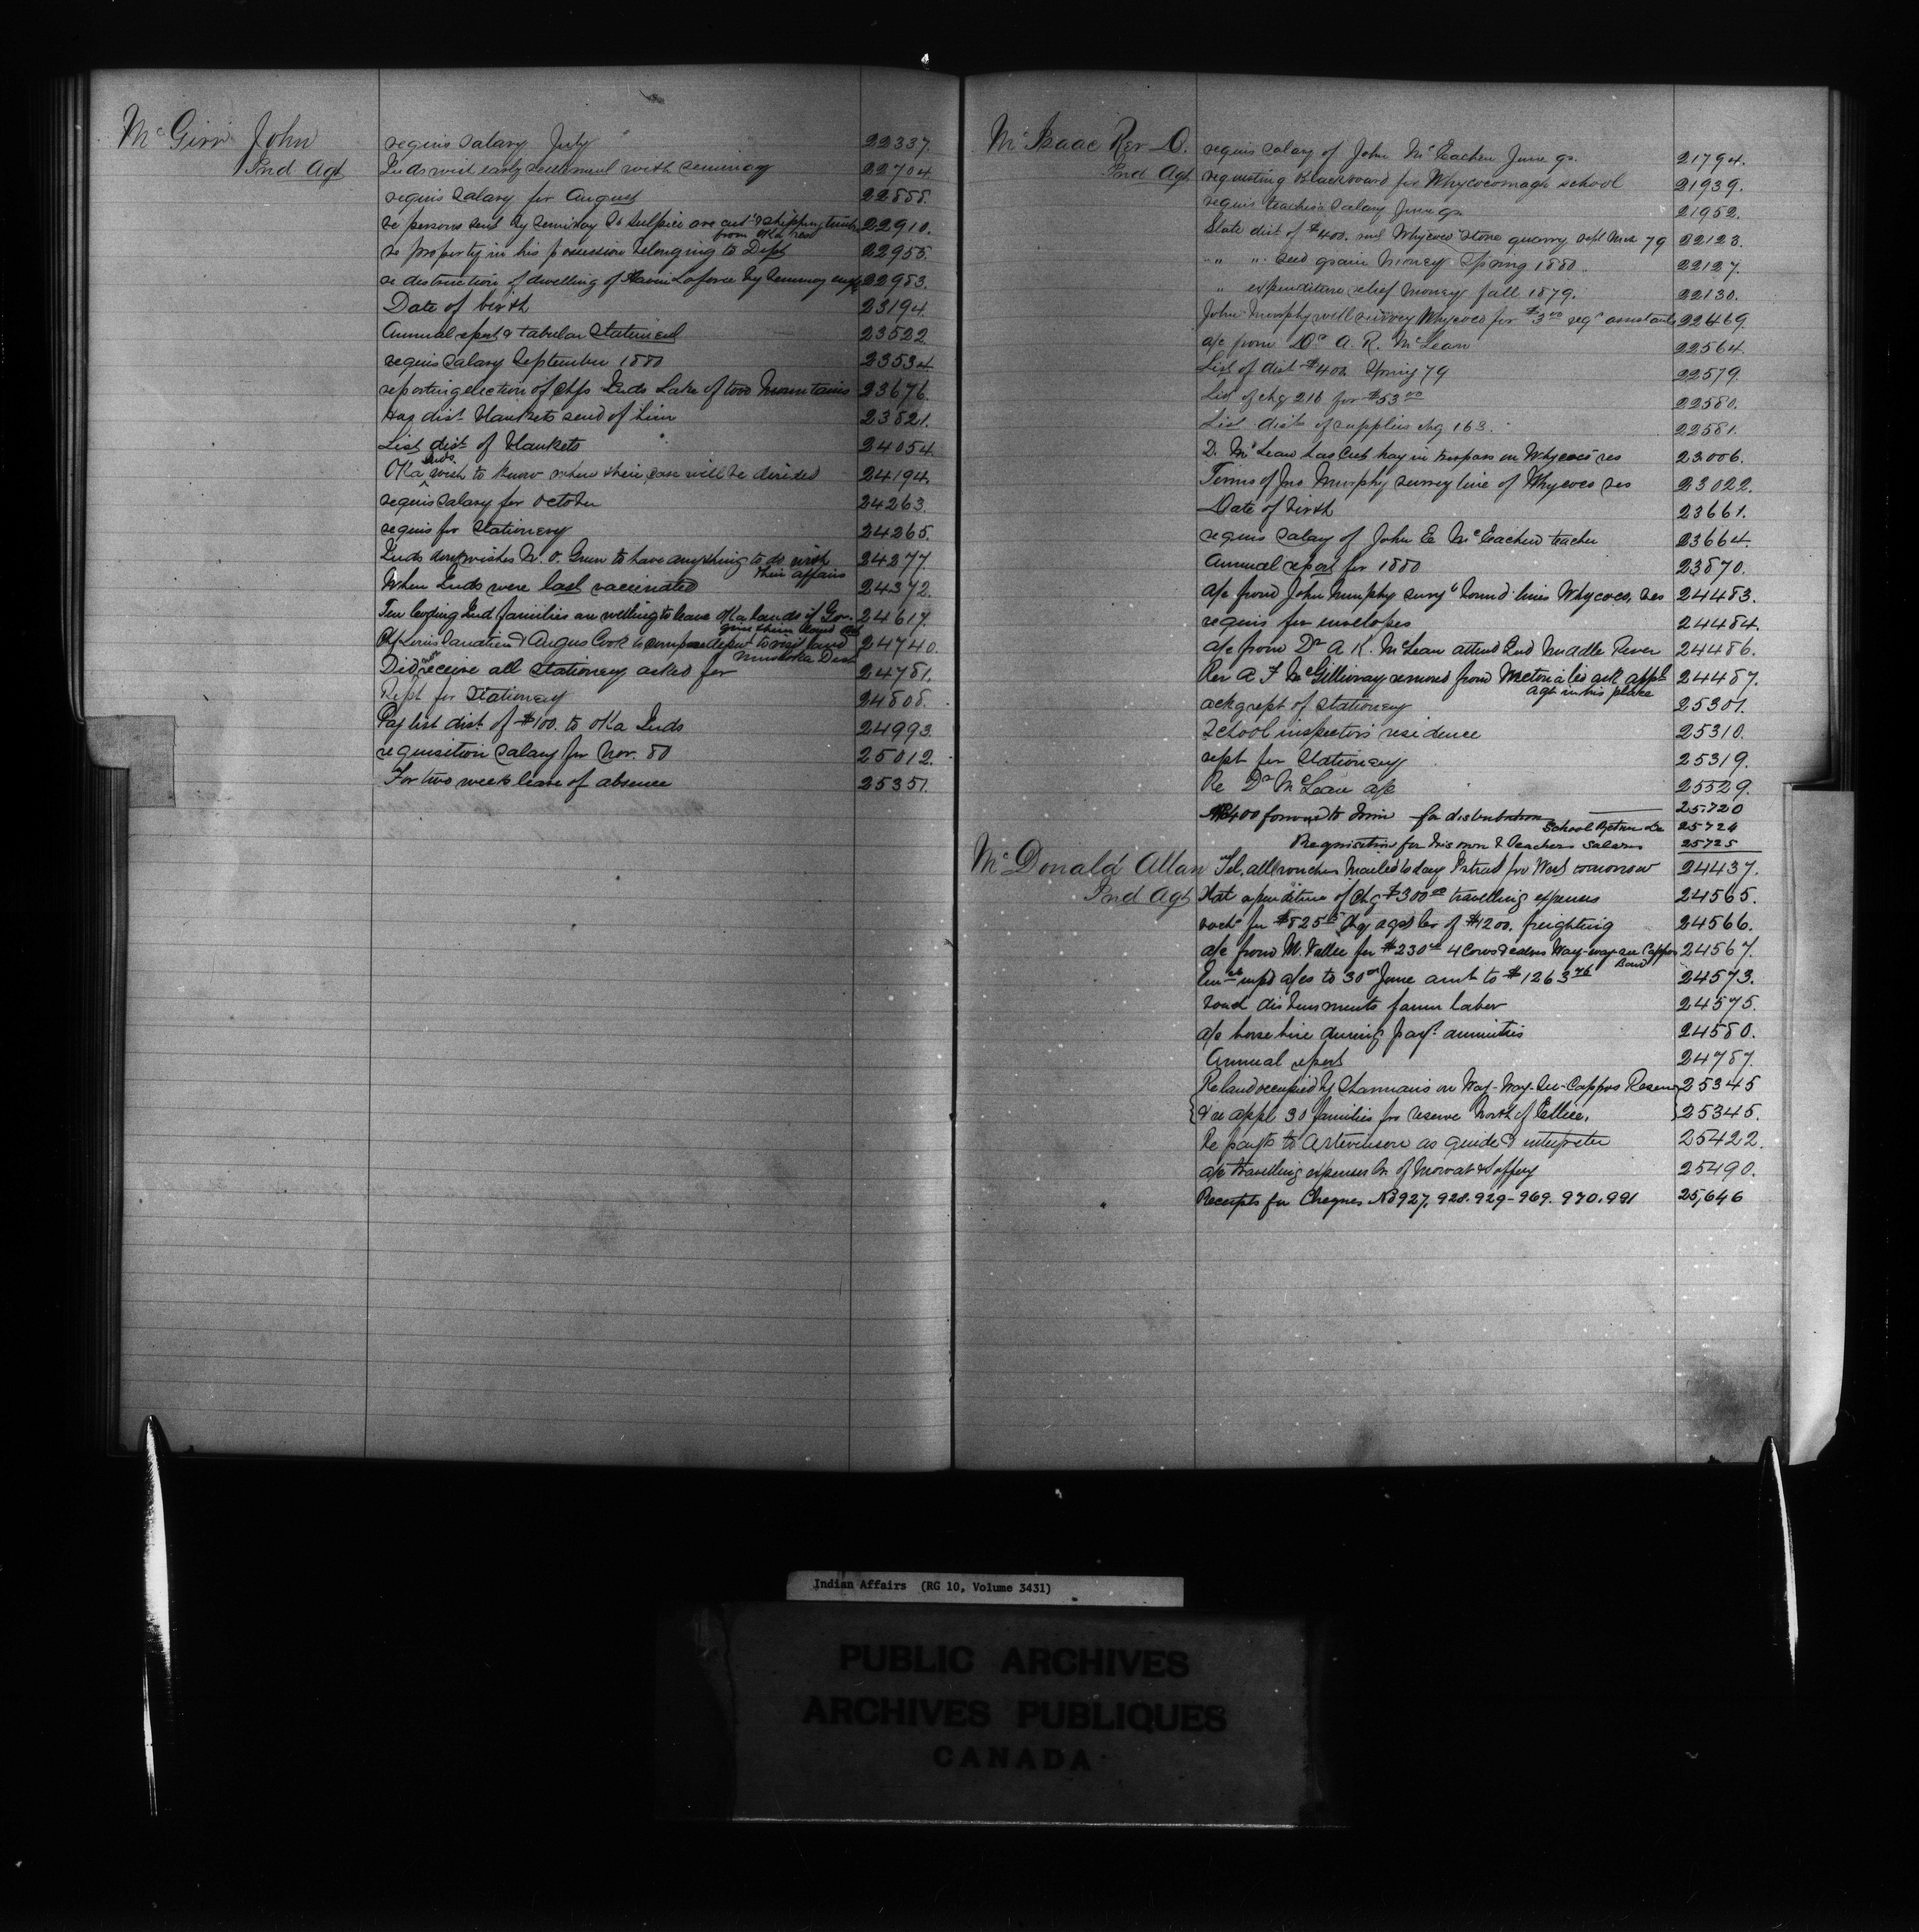 McGirr John
Ind Agt
requis salary July 22337.
Inds wish early settlement with seminary 22704
requis salary for August 22858.
re persons sent by Seminary St Sulpice are cut & shipping timber 22910.
from Oka res
re property in his possession belonging to Dept 22955.
re destruction of dwelling of Laforce by Seminary 22983.
Date of birth 23194
Annual report & tabular Statement 23522
requis salary September 1880 23534
reporting election of chfs Inds Lake of two Mountains 23676.
Has dist. blankets send of him 23821.
List dist. of blankets 24054.
Oka Inds wish to know when their case will be decided 24194.
requis salary for October 24263.
requis for Stationery 24265.
Inds dont wishes to have anything to do with 24277.
their affairs
When Inds were last vaccinated 24372.
Ten leading Ind families are willing to leave Oka lands if Gov. 24617.
give them land
Chf Louis & Angus Cook to visit land 24740.
Muskoka Dist
Did not receive all Stationery asked for 24781.
Rept for Stationery 24808.
Pay list dist. of $100. to Oka Inds 24993.
requisition salary for Nov. 80 25012.
For two weeks leave of absence 25351.
McIsaac Rev D.
Ind Agt
requis salary of John McEachen June qr. 21794.
requesting Blackboard for Whycocomagh school 21939.
requis teachers salary June qr 21952.
State dist of $400. and Whycoco Stone quarry Sept 79 22123.
" " seed grain money Spring 1880 22127.
" expenditure relief money fall 1879. 22130.
John Murphy will survey Whycoco for $3.00 reqs assistants 22469.
a/c from Dr A. R. McLean 22564.
List of dist $400 Spring 79 22579.
List of chq 216 for $53.00 22580.
List dist of supplies chq 163. 22581.
D. McLean has cut hay in trespass on Whycoco res 23006.
Terms of Jno Murphy survey line of Whycoco res 23022.
Date of birth 23661.
requis salary of John E McEachen teacher 23664.
Annual report for 1880 23870.
a/c from John Murphy survg bound. lines Whycoco. res 24483.
requis for envelopes 24484.
a/c from Dr A K. McLean attend Ind Middle River 24486.
Rev A F McGillivray removed from ask appt 24487.
agt in his place
ackg rept of Stationery 25301.
School inspectors residence 25310.
rept for Stationery 25319.
Re Dr McLean a/c 25529.
$400 forward to him for distribution 25.720
School Return &c 25724
Requisition for his own & Teachers Salaries 25725
McDonald Allan
Ind Agt
Tel. all vouchers mailed today I start for West tomorrow 24437.
Stat expenditure of chq $300.00 travelling expenses 24565.
vochs for $825 chq agst Cr of $1200. freighting 24566.
a/c from M. Vallee for $230.00 4 Cows & calves Way-way-see Cappos 24567.
Band
unpd a/cs to 30th June amt to $1263.76 24573.
vouch disbursments farm labor 24575.
a/c horse hire during payt. annuities 24580.
Annual report 24787.
Re land occupied by on Way-Way-See-Cappos Reserve 25345
& re appl 30 families for reserve North of Ellice. 25345.
Re payts to A Stevenson as guide & interpreter 25422.
a/c travelling expenses 25490.
Receipts for Cheques No 927. 928. 929-969. 970. 991 25,646
Indian Affairs (RG 10, Volume 3431)
PUBLIC ARCHIVES
ARCHIVES PUBLIQUES
CANADA